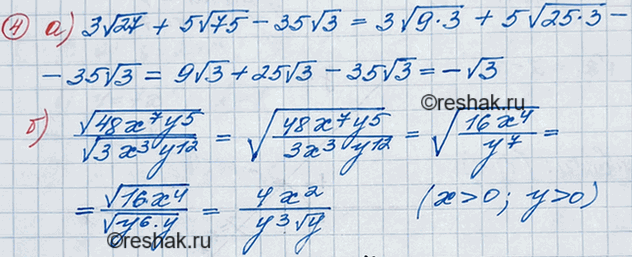 ④ а) 3√27 + 5√75 − 35√3 = 3√(9·3) + 5√(25·3) −
− 35√3 = 9√3 + 25√3 − 35√3 = −√3
б) √(48x⁷y⁵)/√(3x³y¹²) = √(48x⁷y⁵/(3x³y¹²)) = √(16x⁴/y⁷) =
= √(16x⁴)/√(y⁶·y) = 4x²/(y³√y) (x>0; y>0)
©reshak.ru
©reshak.ru